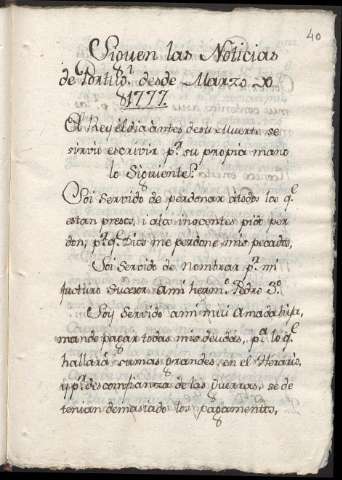 40
Siguen las Noticias
de Portug.l desde Marzo
1777.
El Rey el dia antes de su Muerte se
sirvio escrivir p.r su propia mano
lo Siguiente.
Soi Servido de perdonar á todos los q.e
estan presos, i a los inocentes pido per
don, p.a q.e Dios me perdone mis pecados,
Soi Servido de Nombrar p.r mi
futuro sucesor a mi herm.o Pedro 3.o
Soy Servido a mi mui Amada hija,
mande pagar todas mis deudas, p.a lo q.e
hallará sumas grandes en el Herario,
y p.r desconfianza de las Guerras, se de
tenian demasiado los pagamentos,